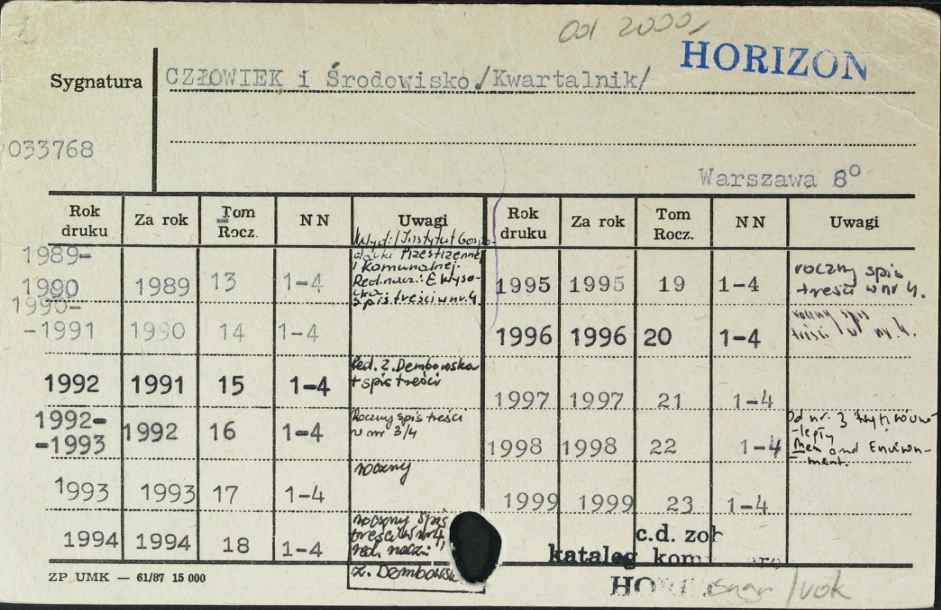 od 2000,
HORIZON
Sygnatura
CZŁOWIEK i Środowisko /Kwartalnik/
033768
Warszawa 8°
Rok druku Za rok Tom Rocz. NN Uwagi Rok druku Za rok Tom Rocz. NN Uwagi
Wyd: Instytut Gospo-
darki Przestrzennej
i Komunalnej.
Red. nacz.: E. Wyso-
cka
Spis treści w nr. 4.
1989-
1990 1989 13 1-4
1995 1995 19 1-4
roczny spis
treści w nr 4.
1990-
-1991 1990 14 1-4
1996 1996 20 1-4
roczny spis
treści w nr. 4.
1992 1991 15 1-4
Red. Z. Dembowska
+ spis treści
1997 1997 21 1-4
1992-
-1993 1992 16 1-4
Roczny spis treści
w nr 3/4
1998 1998 22 1-4
Od nr. 3 tyt. równo-
-legły
Men and Environ-
ment.
1993 1993 17 1-4
roczny
1999 1999 23 1-4
1994 1994 18 1-4
roczny spis
treści w nr 4,
red. nacz.:
Z. Dembowsk
c.d. zob
katalog kom
HO
ZP UMK — 61/87 15 000